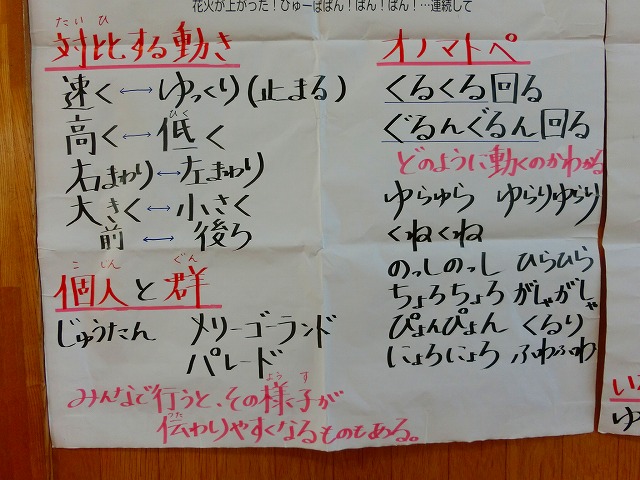 花火が上がった！ひゅーぱぱん！ぱん！ぱん！…連続して
たいひ
対比する動き
速く↔ゆっくり(止まる)
ひく
高く↔低く
右まわり↔左まわり
大きく↔小さく
前↔後ろ
こじん ぐん
個人と群
じゅうたん メリーゴーランド
パレード
ようす
みんなで行うと、その様子が
つた
伝わりやすくなるものもある。
オノマトペ
くるくる回る
ぐるんぐるん回る
どのように動くのかわかる
ゆらゆら ゆらりゆらり
くねくね
のっしのっし ひらひら
ちょろちょろ がしゃがしゃ
ぴょんぴょん くるり
にょろにょろ ふわふわ